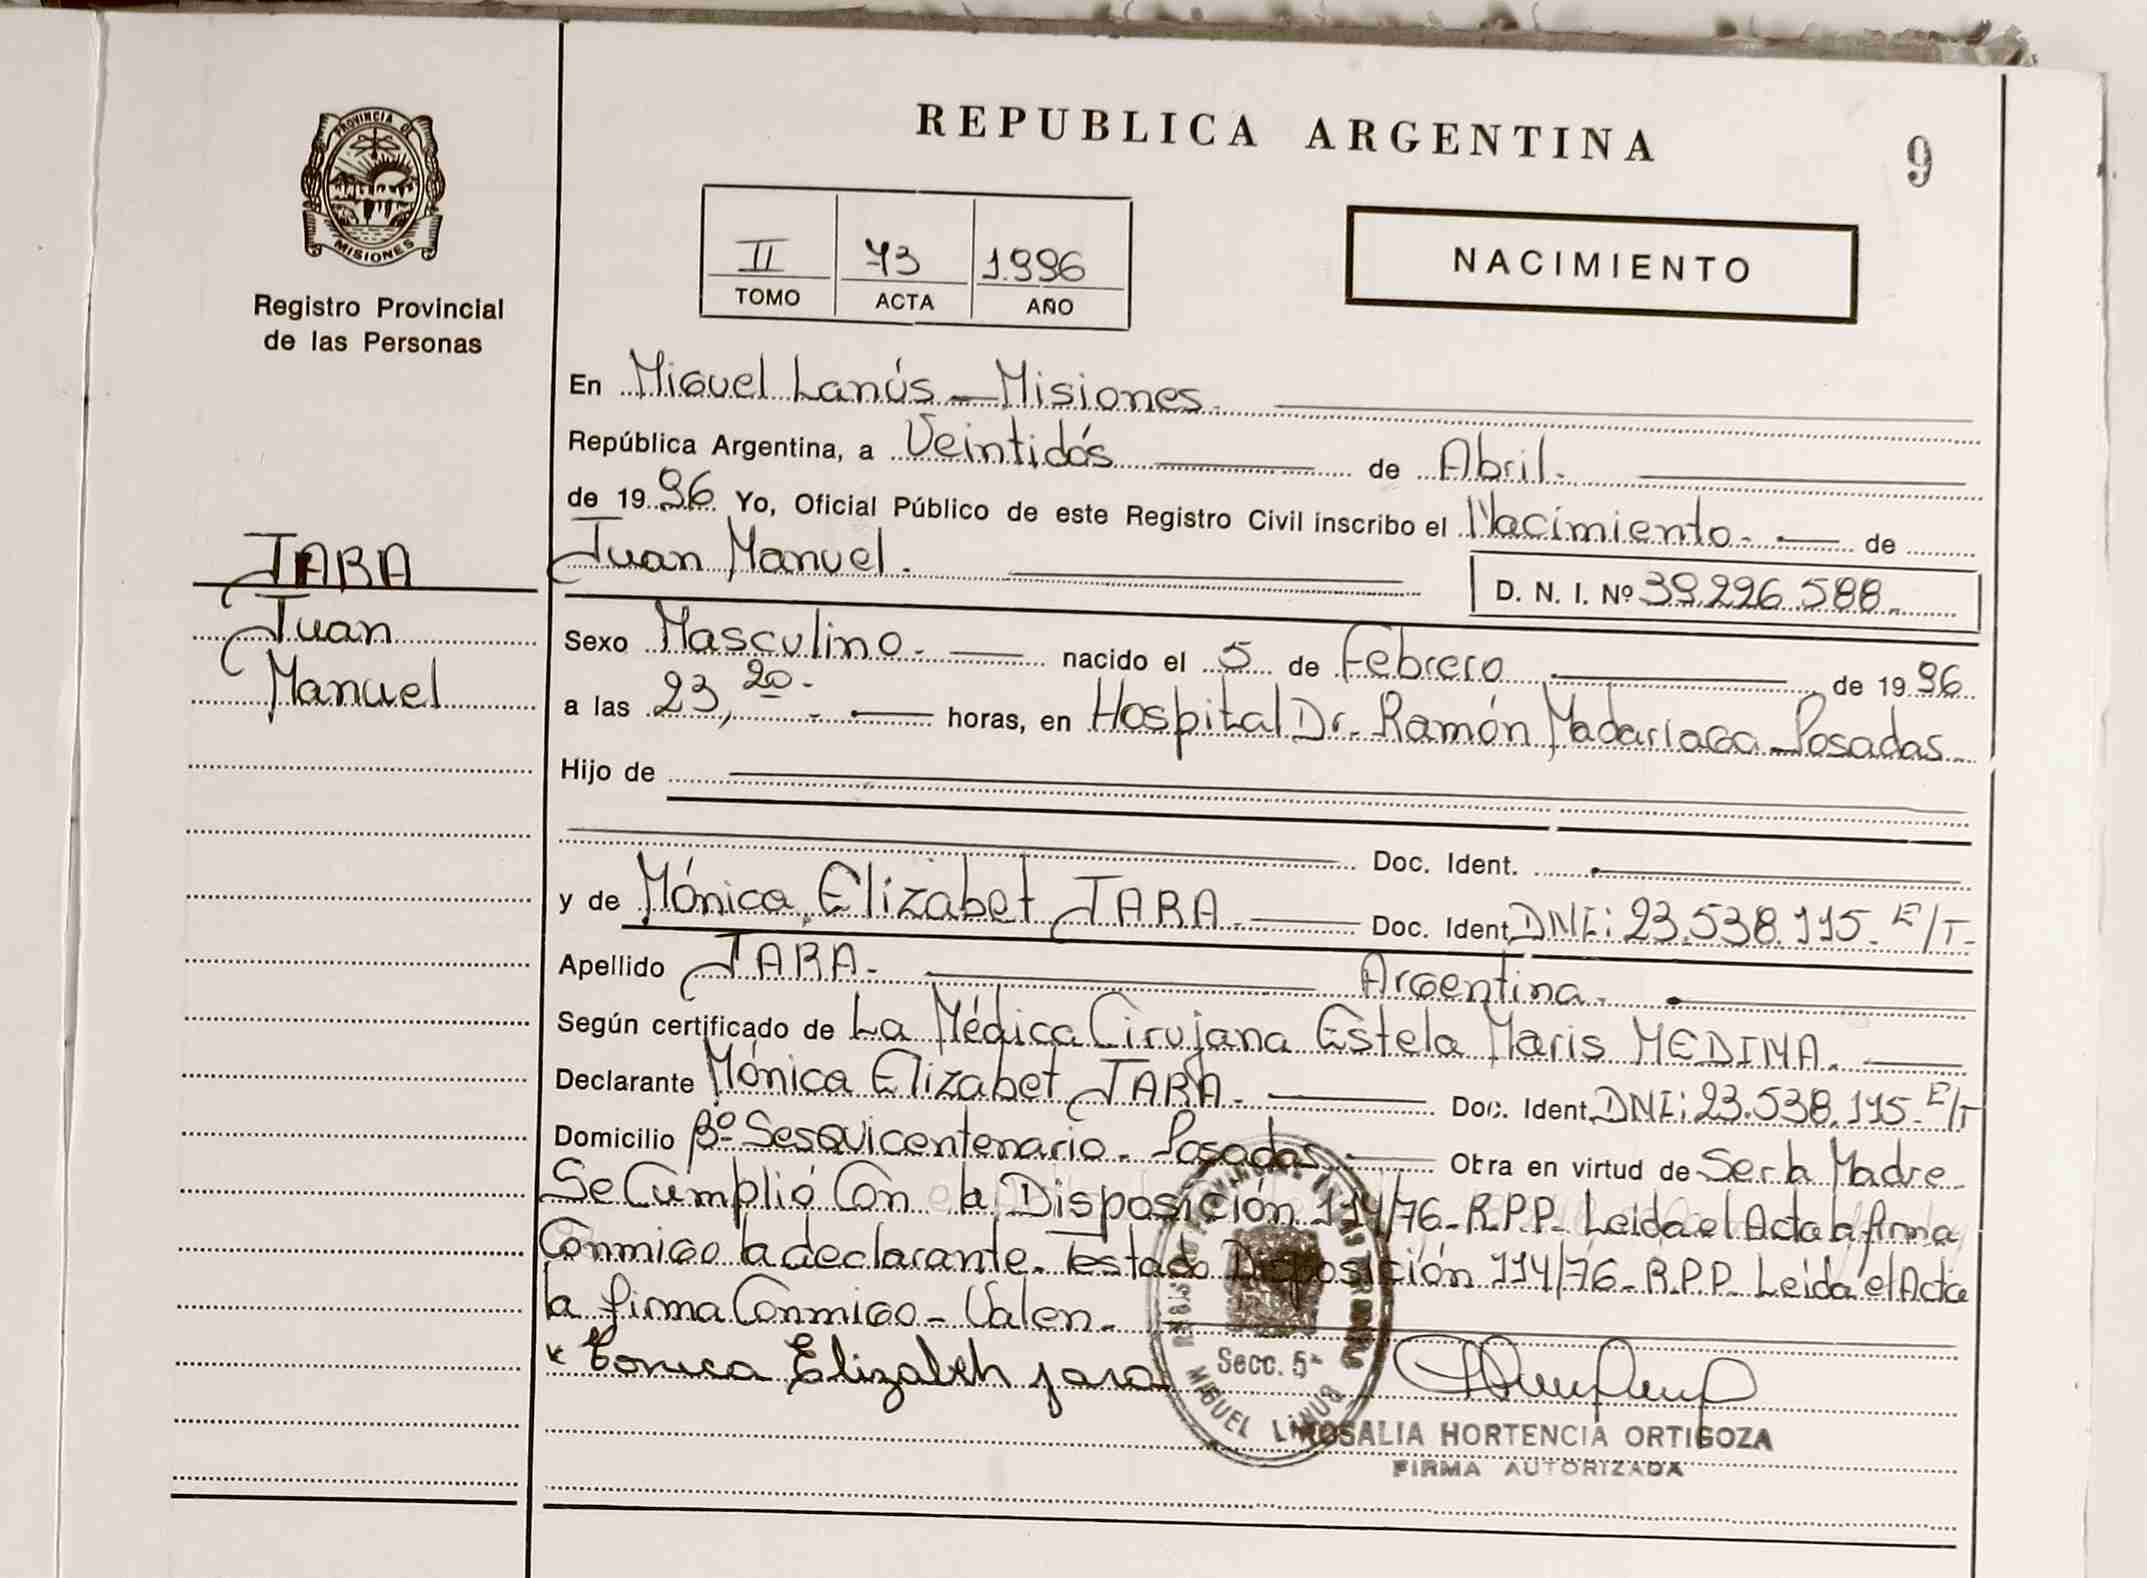 REPUBLICA ARGENTINA
9
PROVINCIA DE
MISIONES
Registro Provincial
de las Personas
II 73 1.996
TOMO ACTA AÑO
NACIMIENTO
En Miguel Lanús - Misiones.
República Argentina, a Veintidós de Abril.
de 1996 Yo, Oficial Público de este Registro Civil inscribo el Nacimiento. de
JARA
Juan
Manuel
Juan Manuel.
D. N. I. Nº 39.296.588.
Sexo Masculino. nacido el 5 de Febrero de 1996.
a las 23,20. horas, en Hospital Dr. Ramón Madariaga - Posadas.
Hijo de
Doc. Ident.
y de Mónica Elizabet JARA. Doc. Ident. DNI: 23.538.115. E/T.
Apellido JARA. Argentina.
Según certificado de La Médica Cirujana Estela Maris MEDINA.
Declarante Mónica Elizabet JARA. Doc. Ident. DNI: 23.538.115. E/T
Domicilio Bº Sesquicentenario. Posadas Obra en virtud de Ser la Madre.
Se Cumplió Con la Disposición 114/76 - R.P.P. Leida el Acta la firma
Conmigo la declarante. Testado Disposición 114/76 - R.P.P. Leida el Acta
la firma Conmigo - Valen.
Monica Elizabeth jara
Secc. 5ª
MIGUEL LANUS
ROSALIA HORTENCIA ORTIGOZA
FIRMA AUTORIZADA